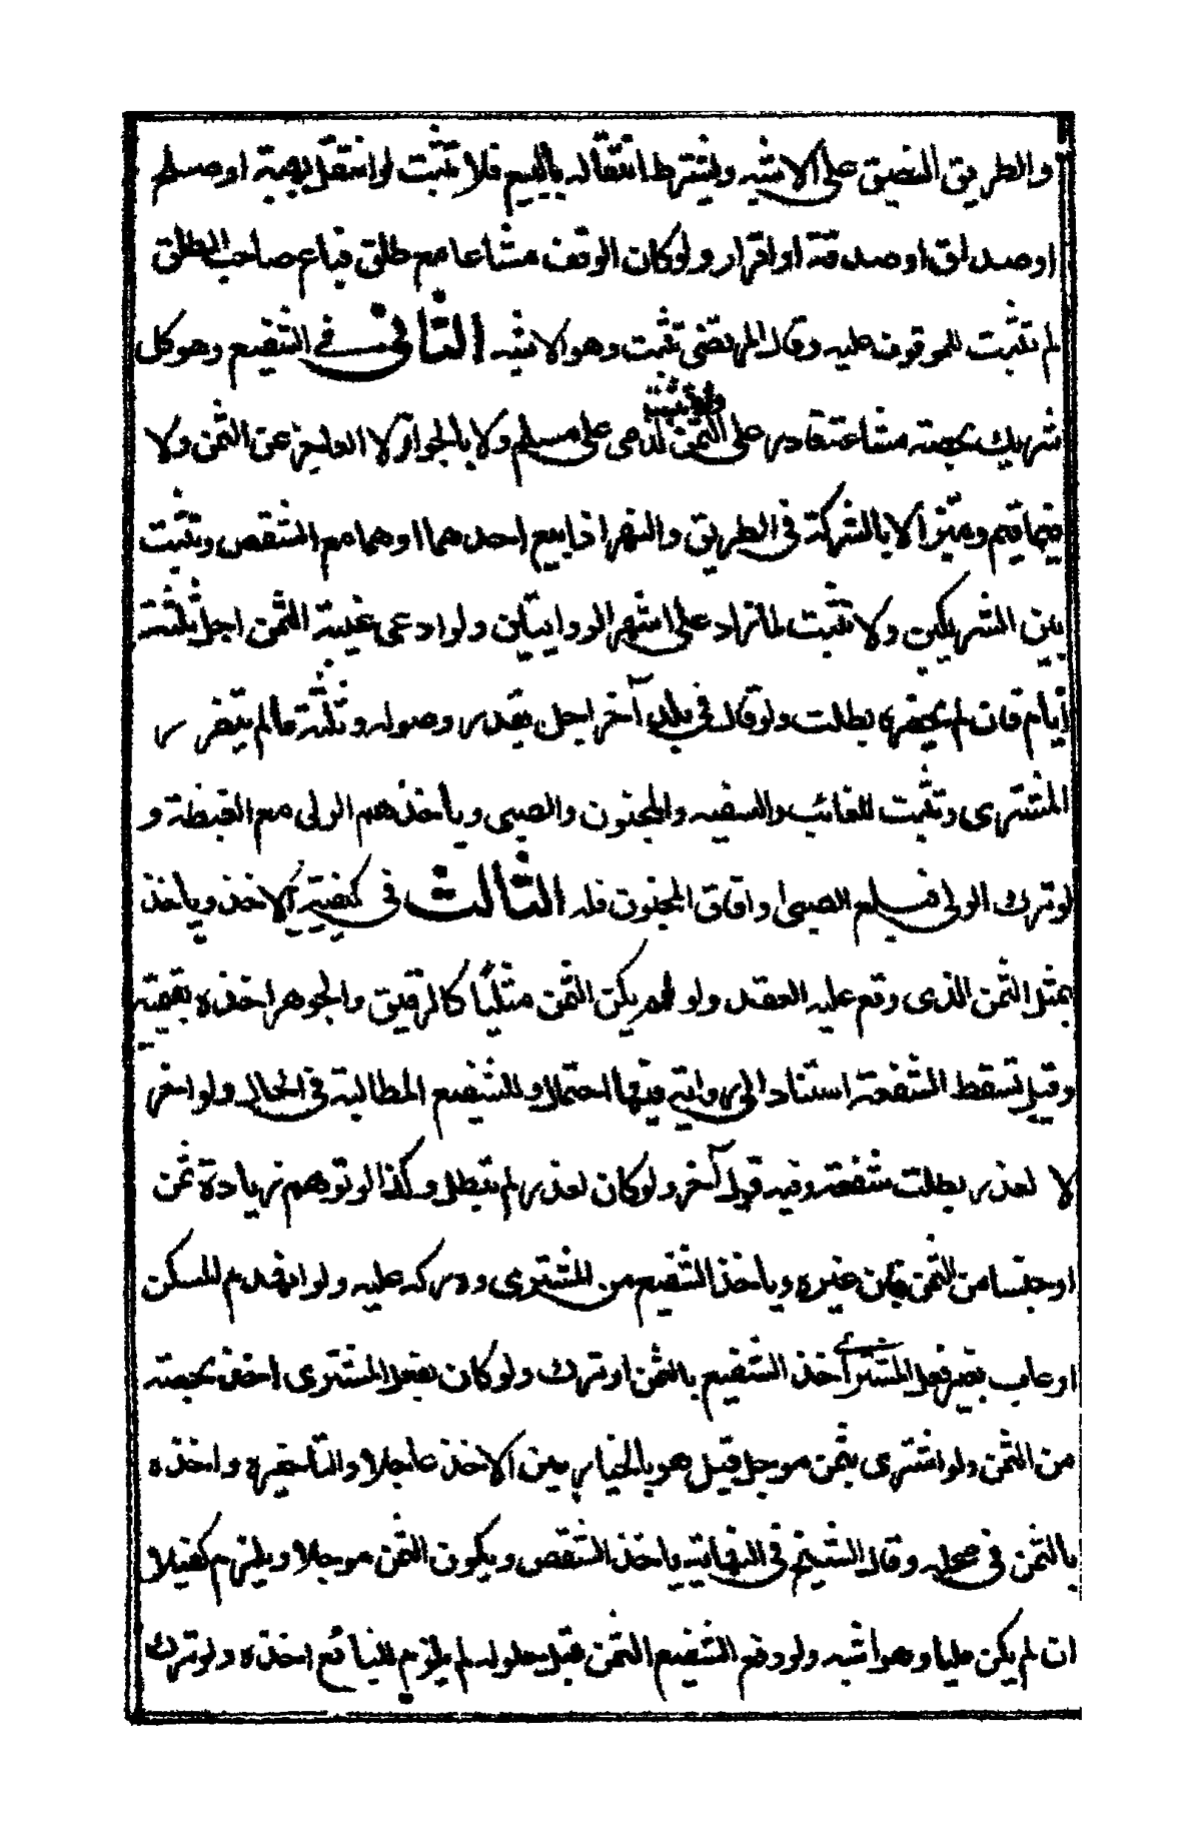 والطريق الضيق على الاشبه ويشترط انتقاله بالبيع فلا تثبت لو انتقل بهبة او صلح
او صداق او صدقة او اقرار ولو كان الوقف مشاعا مع طلق فباع صاحب الطلق
لم تثبت للموقوف عليه وقال المرتضى تثبت وهو الاشبه الثاني في الشفيع وهو كل
شريك بحصته مشاعة قادر على الثمن ولا تثبت لذمى على مسلم ولا بالجوار ولا العاجز عن الثمن ولا
فيما قسم وميّز الا بالشركة في الطريق والنهر اذا بيع احدهما او هما مع الشقص وتثبت
بين الشريكين ولا تثبت لما زاد على اشهر الروايتين ولو ادعى غيبة الثمن اجل ثلثة
ايام فان لم يحضره بطلت ولو قال في بلد آخر اجل بقدر وصوله وثلثة ما لم يتضرر
المشترى وتثبت للغائب والسفيه والمجنون والصبى وياخذ لهم الولى مع الغبطة و
لو ترك الولى فبلغ الصبى او افاق المجنون فله الثالث في كيفية الاخذ وياخذ
بمثل الثمن الذى وقع عليه العقد ولو لم يكن الثمن مثليًّا كالرقيق والجوهر اخذه بقيمته
وقيل تسقط الشفعة استنادا الى رواية فيها احتمال وللشفيع المطالبة في الحال ولو اخر
لا لعذر بطلت شفعته وفيه قول آخر ولو كان لعذر لم تبطل وكذا لو توهم زيادة ثمن
او جنسا من الثمن فبان غيره وياخذ الشفيع من المشترى ودركه عليه ولو انهدم المسكن
او عاب بغير فعل المشترى اخذ الشفيع بالثمن او ترك ولو كان بفعل المشترى اخذ بحصته
من الثمن ولو اشترى بثمن موجل قيل هو بالخيار بين الاخذ عاجلا والتاخير واخذه
بالثمن في محله وقال الشيخ في النهاية ياخذ الشقص ويكون الثمن موجلا ويلزم كفيلا
ان لم يكن مليا وهو اشبه ولو دفع الشفيع الثمن قبل حلوله لم يلزم البائع اخذه ولو ترك